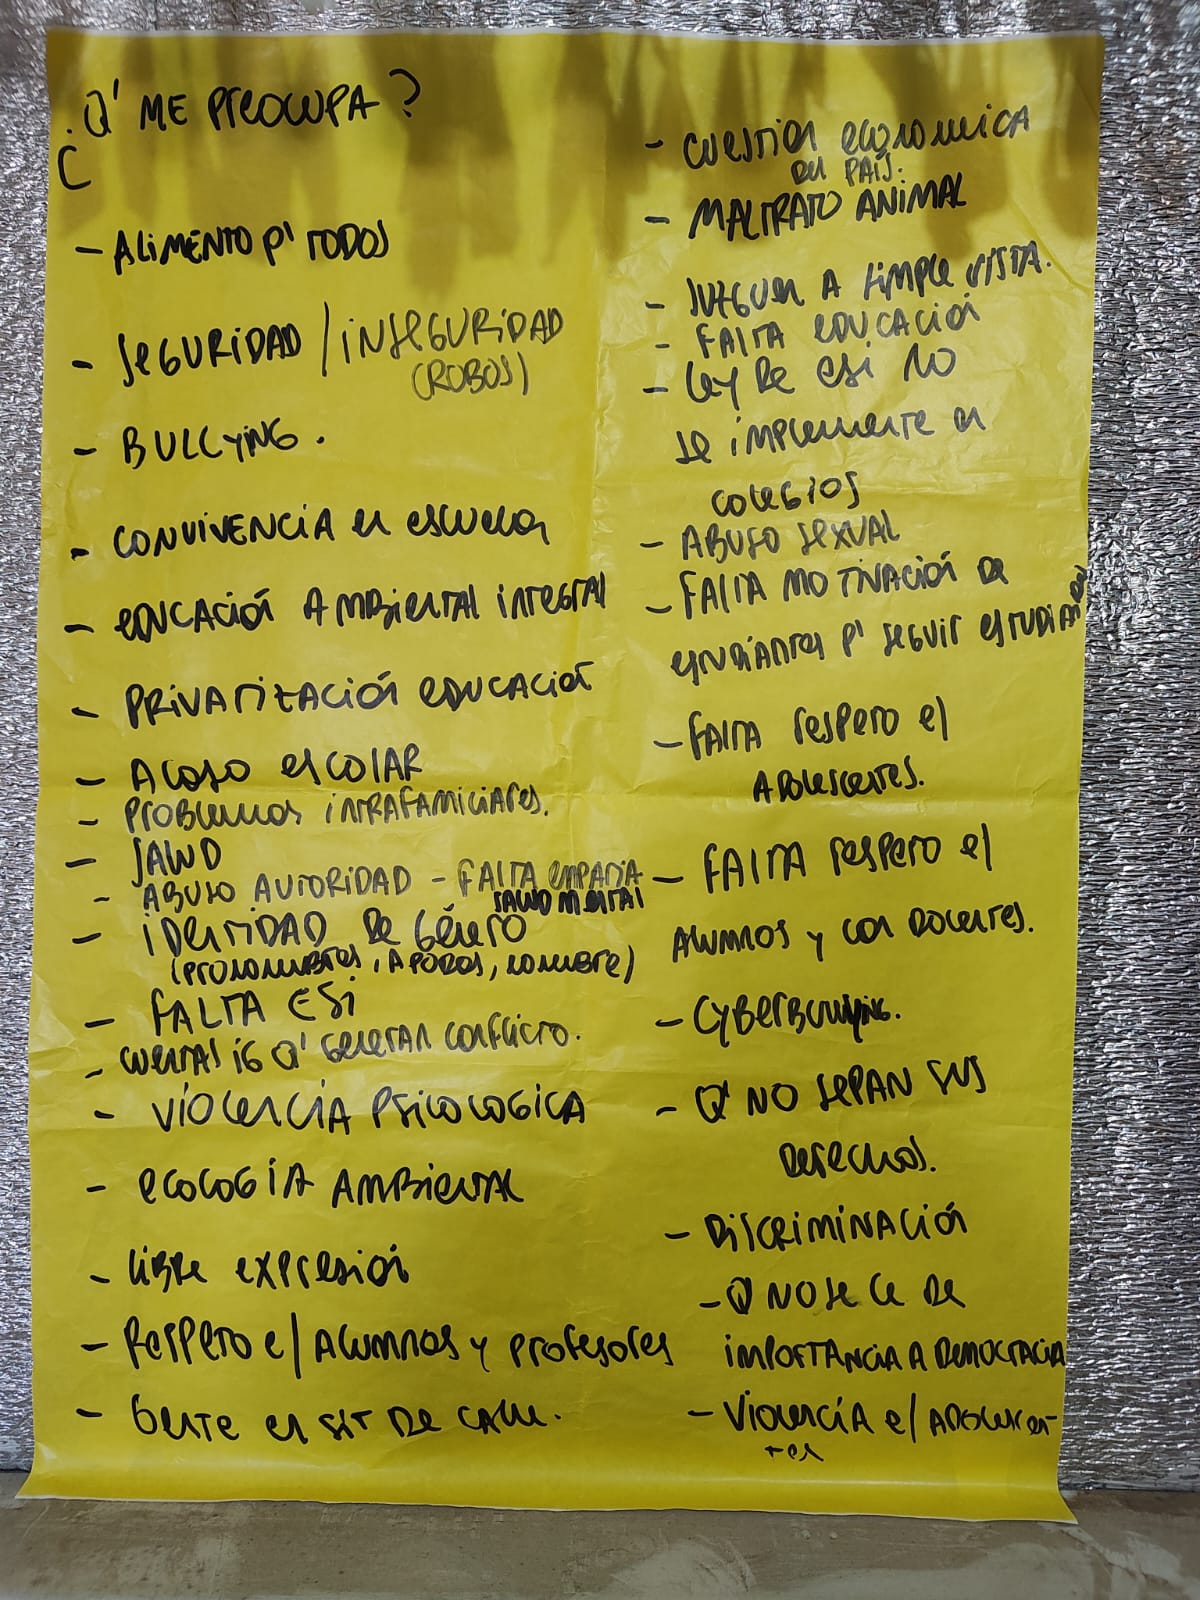 ¿Q' ME PREOCUPA?
- ALIMENTO P' TODOS
- SEGURIDAD / INSEGURIDAD
(ROBOS)
- BULLYING.
- CONVIVENCIA en escuela
- educación AMBiental integral
- PRIVATIZACIÓN educación
- ACOSO escolar
- PROBLEMAS INTRAFAMILIARES.
- SALUD
- ABUSO AUTORIDAD - FALTA empatía
SALUD MENTAL
- IDENTIDAD de Género
(PRONOMBRES, APODOS, NOMBRE)
- FALTA ESI
- cuentas IG Q' Generan conflicto.
- VIOLENCIA PSICOLOGICA
- ECOLOGÍA AMBIENTAL
- libre expresión
- Respeto e/ ALUMNOS y profesores
- Gente en sit DE CALLE.
- cuestión economica
en PAÍS.
- MALTRATO ANIMAL
- Juzguen A simple vista.
- FALTA educación
- Ley de esi NO
se implemente en
colegios
- ABUSO SEXUAL
- FALTA MOTIVACIÓN de
estudiantes P' seguir estudiando
- FALTA respeto e/
Adolescentes.
- FALTA respeto e/
ALUMNOS y con Docentes.
- CYBERBullying.
- Q' NO SEPAN SUS
Derechos.
- DISCRIMINACIÓN
- Q NO SE LE DE
IMPORTANCIA A DEMOCRACIA
- VIOLENCIA e/ ADOLESCEN
tes